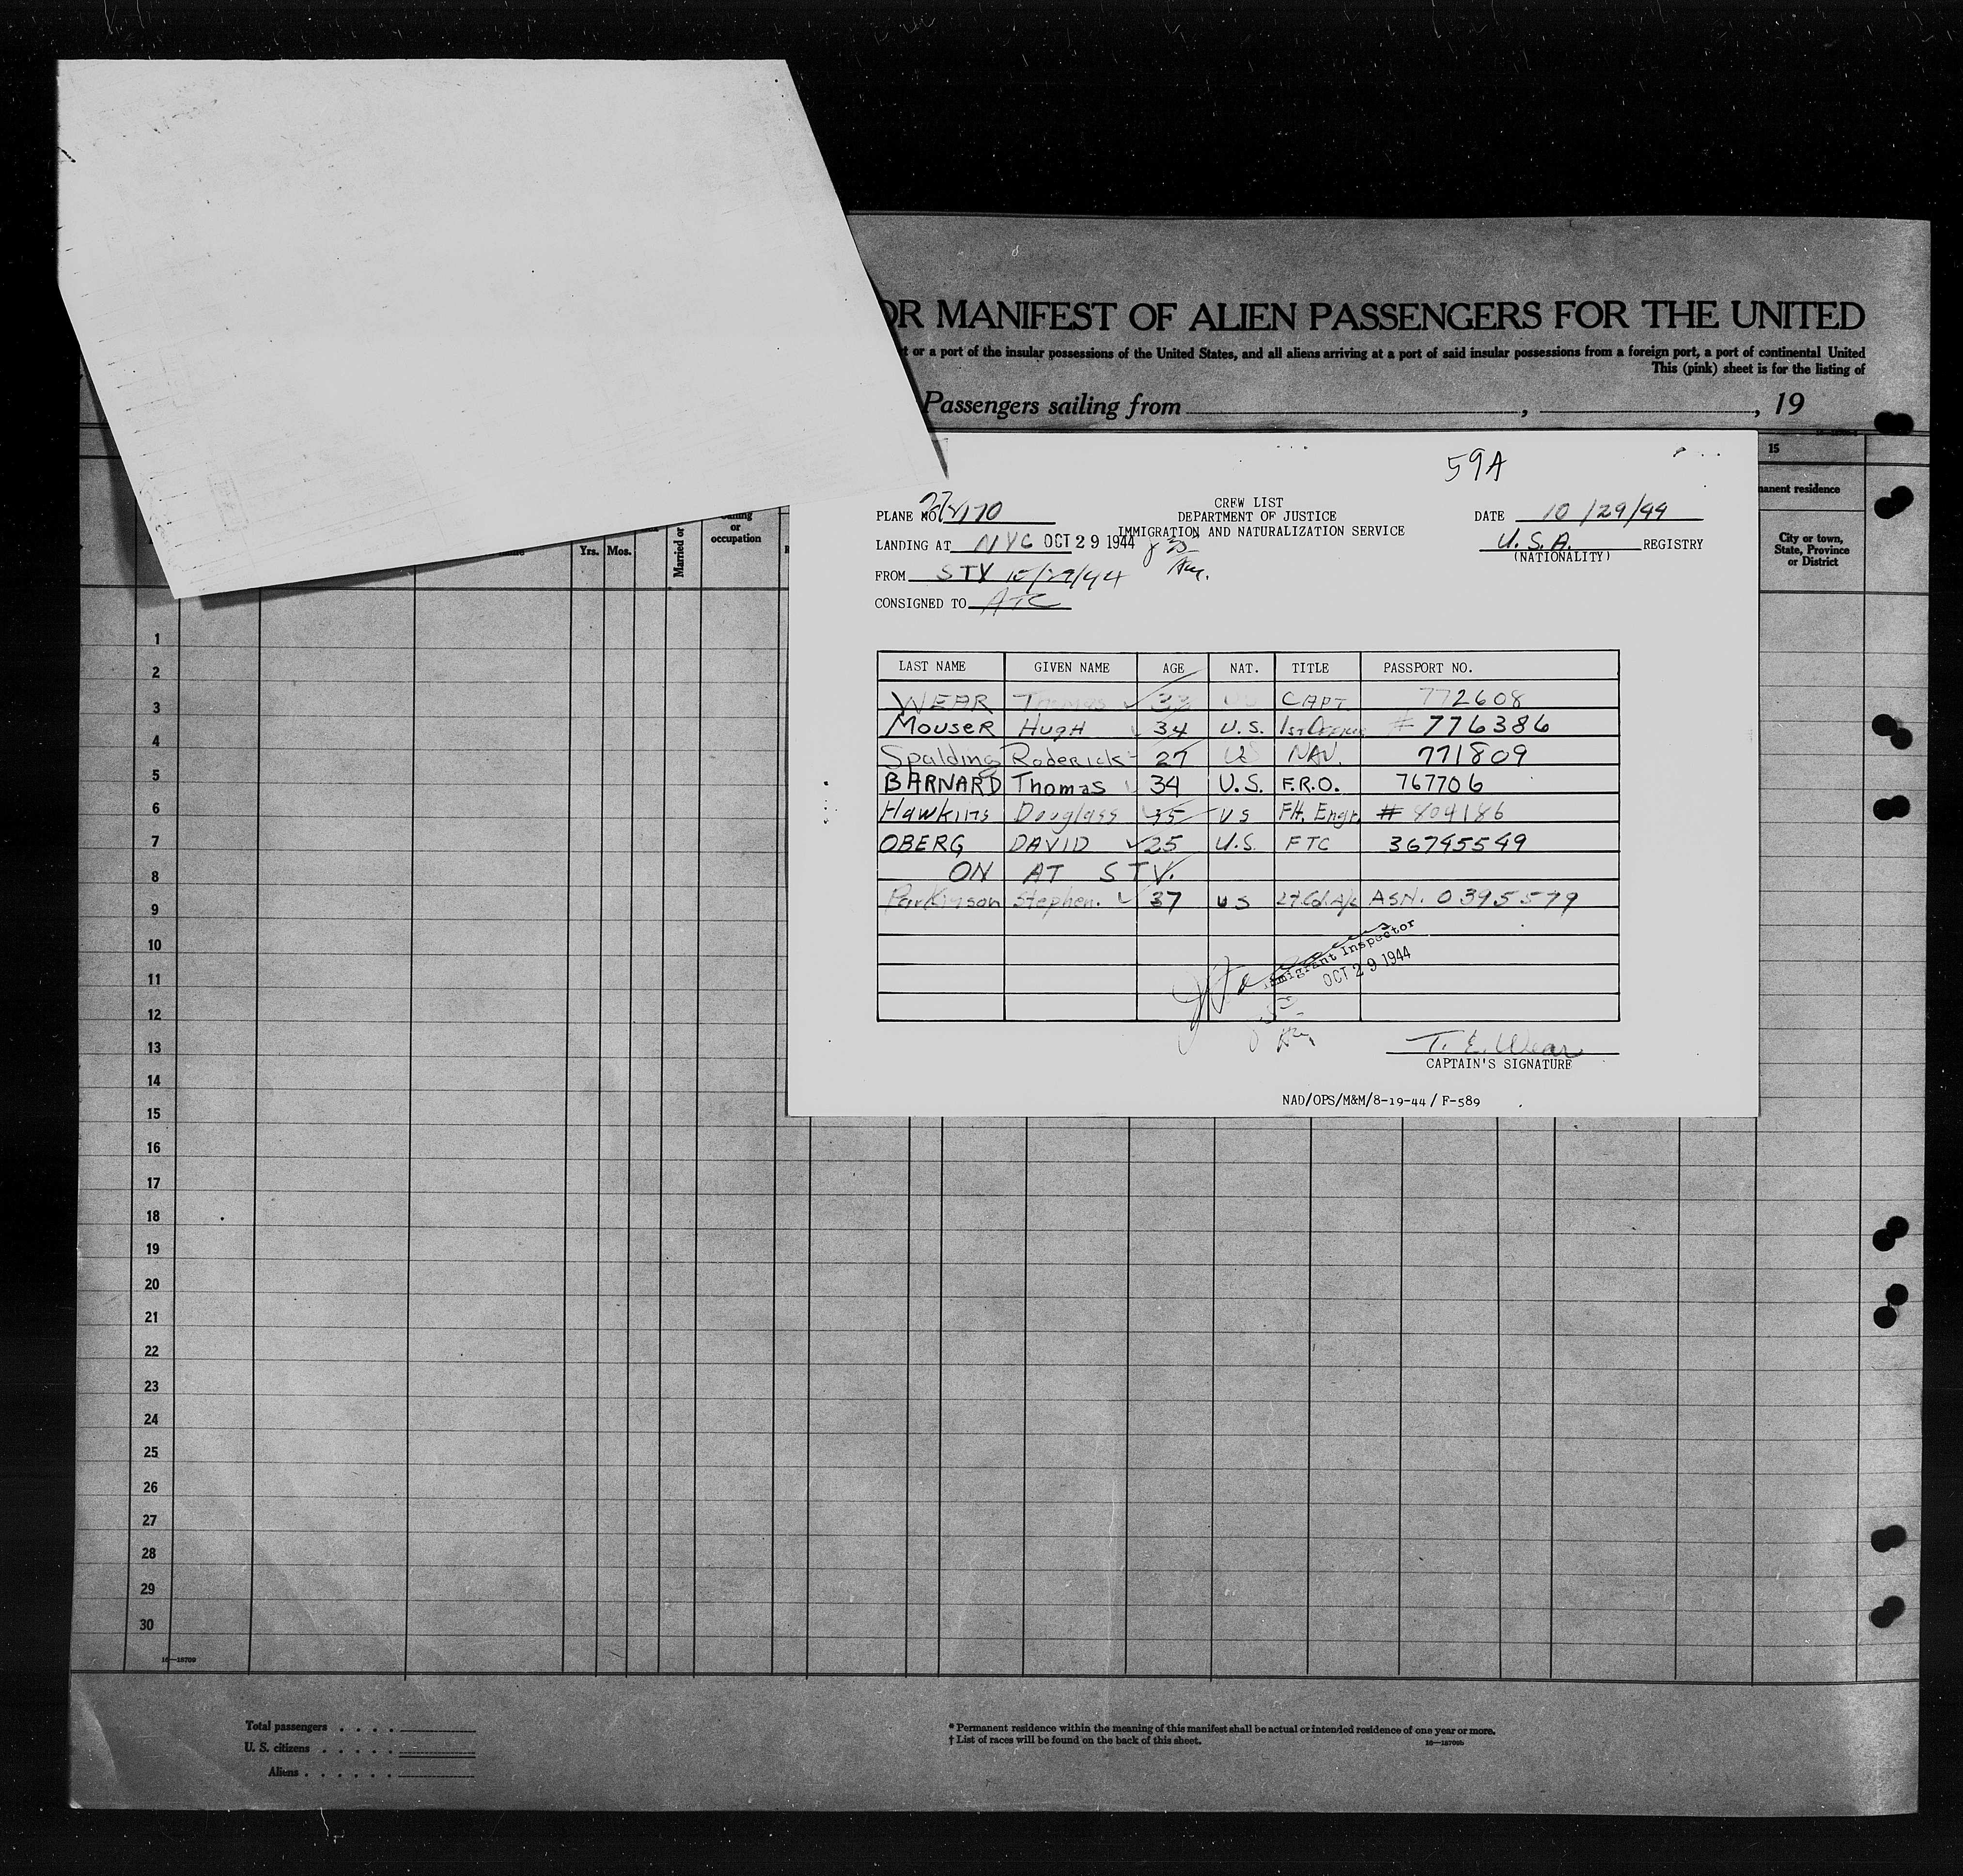 OR MANIFEST OF ALIEN PASSENGERS FOR THE UNITED
t or a port of the insular possessions of the United States, and all aliens arriving at a port of said insular possessions from a foreign port, a port of continental United
This (pink) sheet is for the listing of
Passengers sailing from , , 19
15
manent residence
City or town,
State, Province
or District
Yrs. Mos.
Married or
or
occupation
59A
CREW LIST
DEPARTMENT OF JUSTICE
IMMIGRATION AND NATURALIZATION SERVICE
PLANE NO.
DATE 10/29/44
LANDING AT NYC OCT 29 1944
U.S.A. REGISTRY
(NATIONALITY)
FROM STV 10/29/44
CONSIGNED TO ATC
LAST NAME GIVEN NAME AGE NAT. TITLE PASSPORT NO.
WEAR Thomas 33 US CAPT 772608
Mouser Hugh 34 U.S. 1st Officer # 776386
Spalding Roderick 27 US NAV. 771809
BARNARD Thomas 34 U.S. F.R.O. 767706
Hawkins Douglass 35 US Flt. Engr. # 804186
OBERG DAVID 25 U.S. FTC 36745549
ON AT STV.
Parkinson Stephen. 37 US Lt Col. A/C ASN. 0395579
Immigrant Inspector
OCT 29 1944
T. E. Wear
CAPTAIN'S SIGNATURE
NAD/OPS/M&M/8-19-44/ F-589
1
2
3
4
5
6
7
8
9
10
11
12
13
14
15
16
17
18
19
20
21
22
23
24
25
26
27
28
29
30
16—18709
Total passengers . . . .
U. S. citizens . . . . .
Aliens . . . . . .
* Permanent residence within the meaning of this manifest shall be actual or intended residence of one year or more.
† List of races will be found on the back of this sheet.
16—18709b